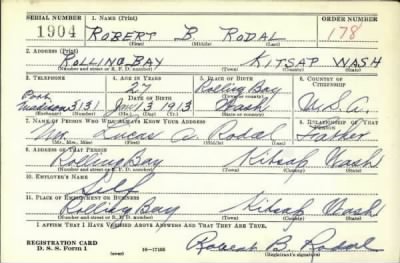 SERIAL NUMBER 1. NAME (Print) ORDER NUMBER
1904 ROBERT B RODAL 178
(First) (Middle) (Last)
2. ADDRESS (Print)
ROLLING BAY KITSAP WASH
(Number and street or R. F. D. number) (Town) (County) (State)
3. TELEPHONE 4. AGE IN YEARS 5. PLACE OF BIRTH 6. COUNTRY OF CITIZENSHIP
27 Rolling Bay
Port DATE OF BIRTH (Town or county)
Madison 3131 Jan 13 1913 Wash U.S.A.
(Exchange) (Number) (Mo.) (Day) (Yr.) (State or country)
7. NAME OF PERSON WHO WILL ALWAYS KNOW YOUR ADDRESS 8. RELATIONSHIP OF THAT PERSON
Mr. Lucas A. Rodal Father
(Mr., Mrs., Miss) (First) (Middle) (Last)
9. ADDRESS OF THAT PERSON
Rolling Bay Kitsap Wash
(Number and street or R. F. D. number) (Town) (County) (State)
10. EMPLOYER'S NAME
Self
11. PLACE OF EMPLOYMENT OR BUSINESS
Rolling Bay Kitsap Wash
(Number and street or R. F. D. number) (Town) (County) (State)
I AFFIRM THAT I HAVE VERIFIED ABOVE ANSWERS AND THAT THEY ARE TRUE.
REGISTRATION CARD
D. S. S. Form 1 16—17105 Robert B. Rodal
(Registrant's signature)